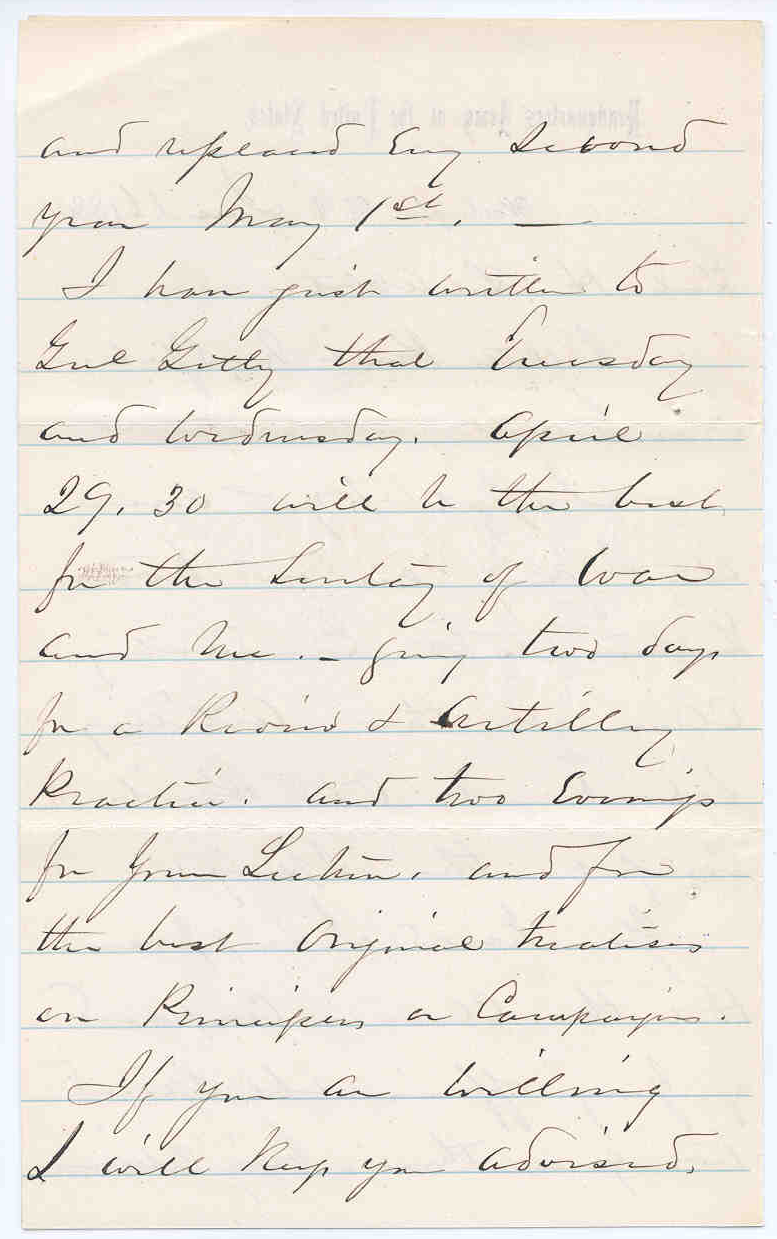 and replaced Every Second
year May 1st. —
I have just written to
Genl Getty that Tuesday
and Wednesday. April
29. 30 will be the best
for the Secretary of War
and Me. – giving two days
for a Review & Artillery
Practice. and two Evenings
for your Lecture. and for
the best Original treatises
on Principles or Campaigns.
If you are willing
I will keep you advised.